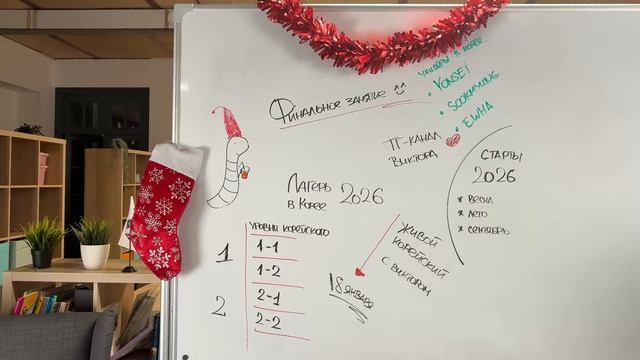 Универы в Корее
• YONSEI
• SOOKMYUNG
• EWHA
Финальное занятие
ТГ-канал
Виктора
Старты
2026
* весна
* лето
* сентябрь
Лагерь
в Корее 2026
Живой
корейский
с Виктором
18 января
уровни корейского
1
1-1
1-2
2
2-1
2-2